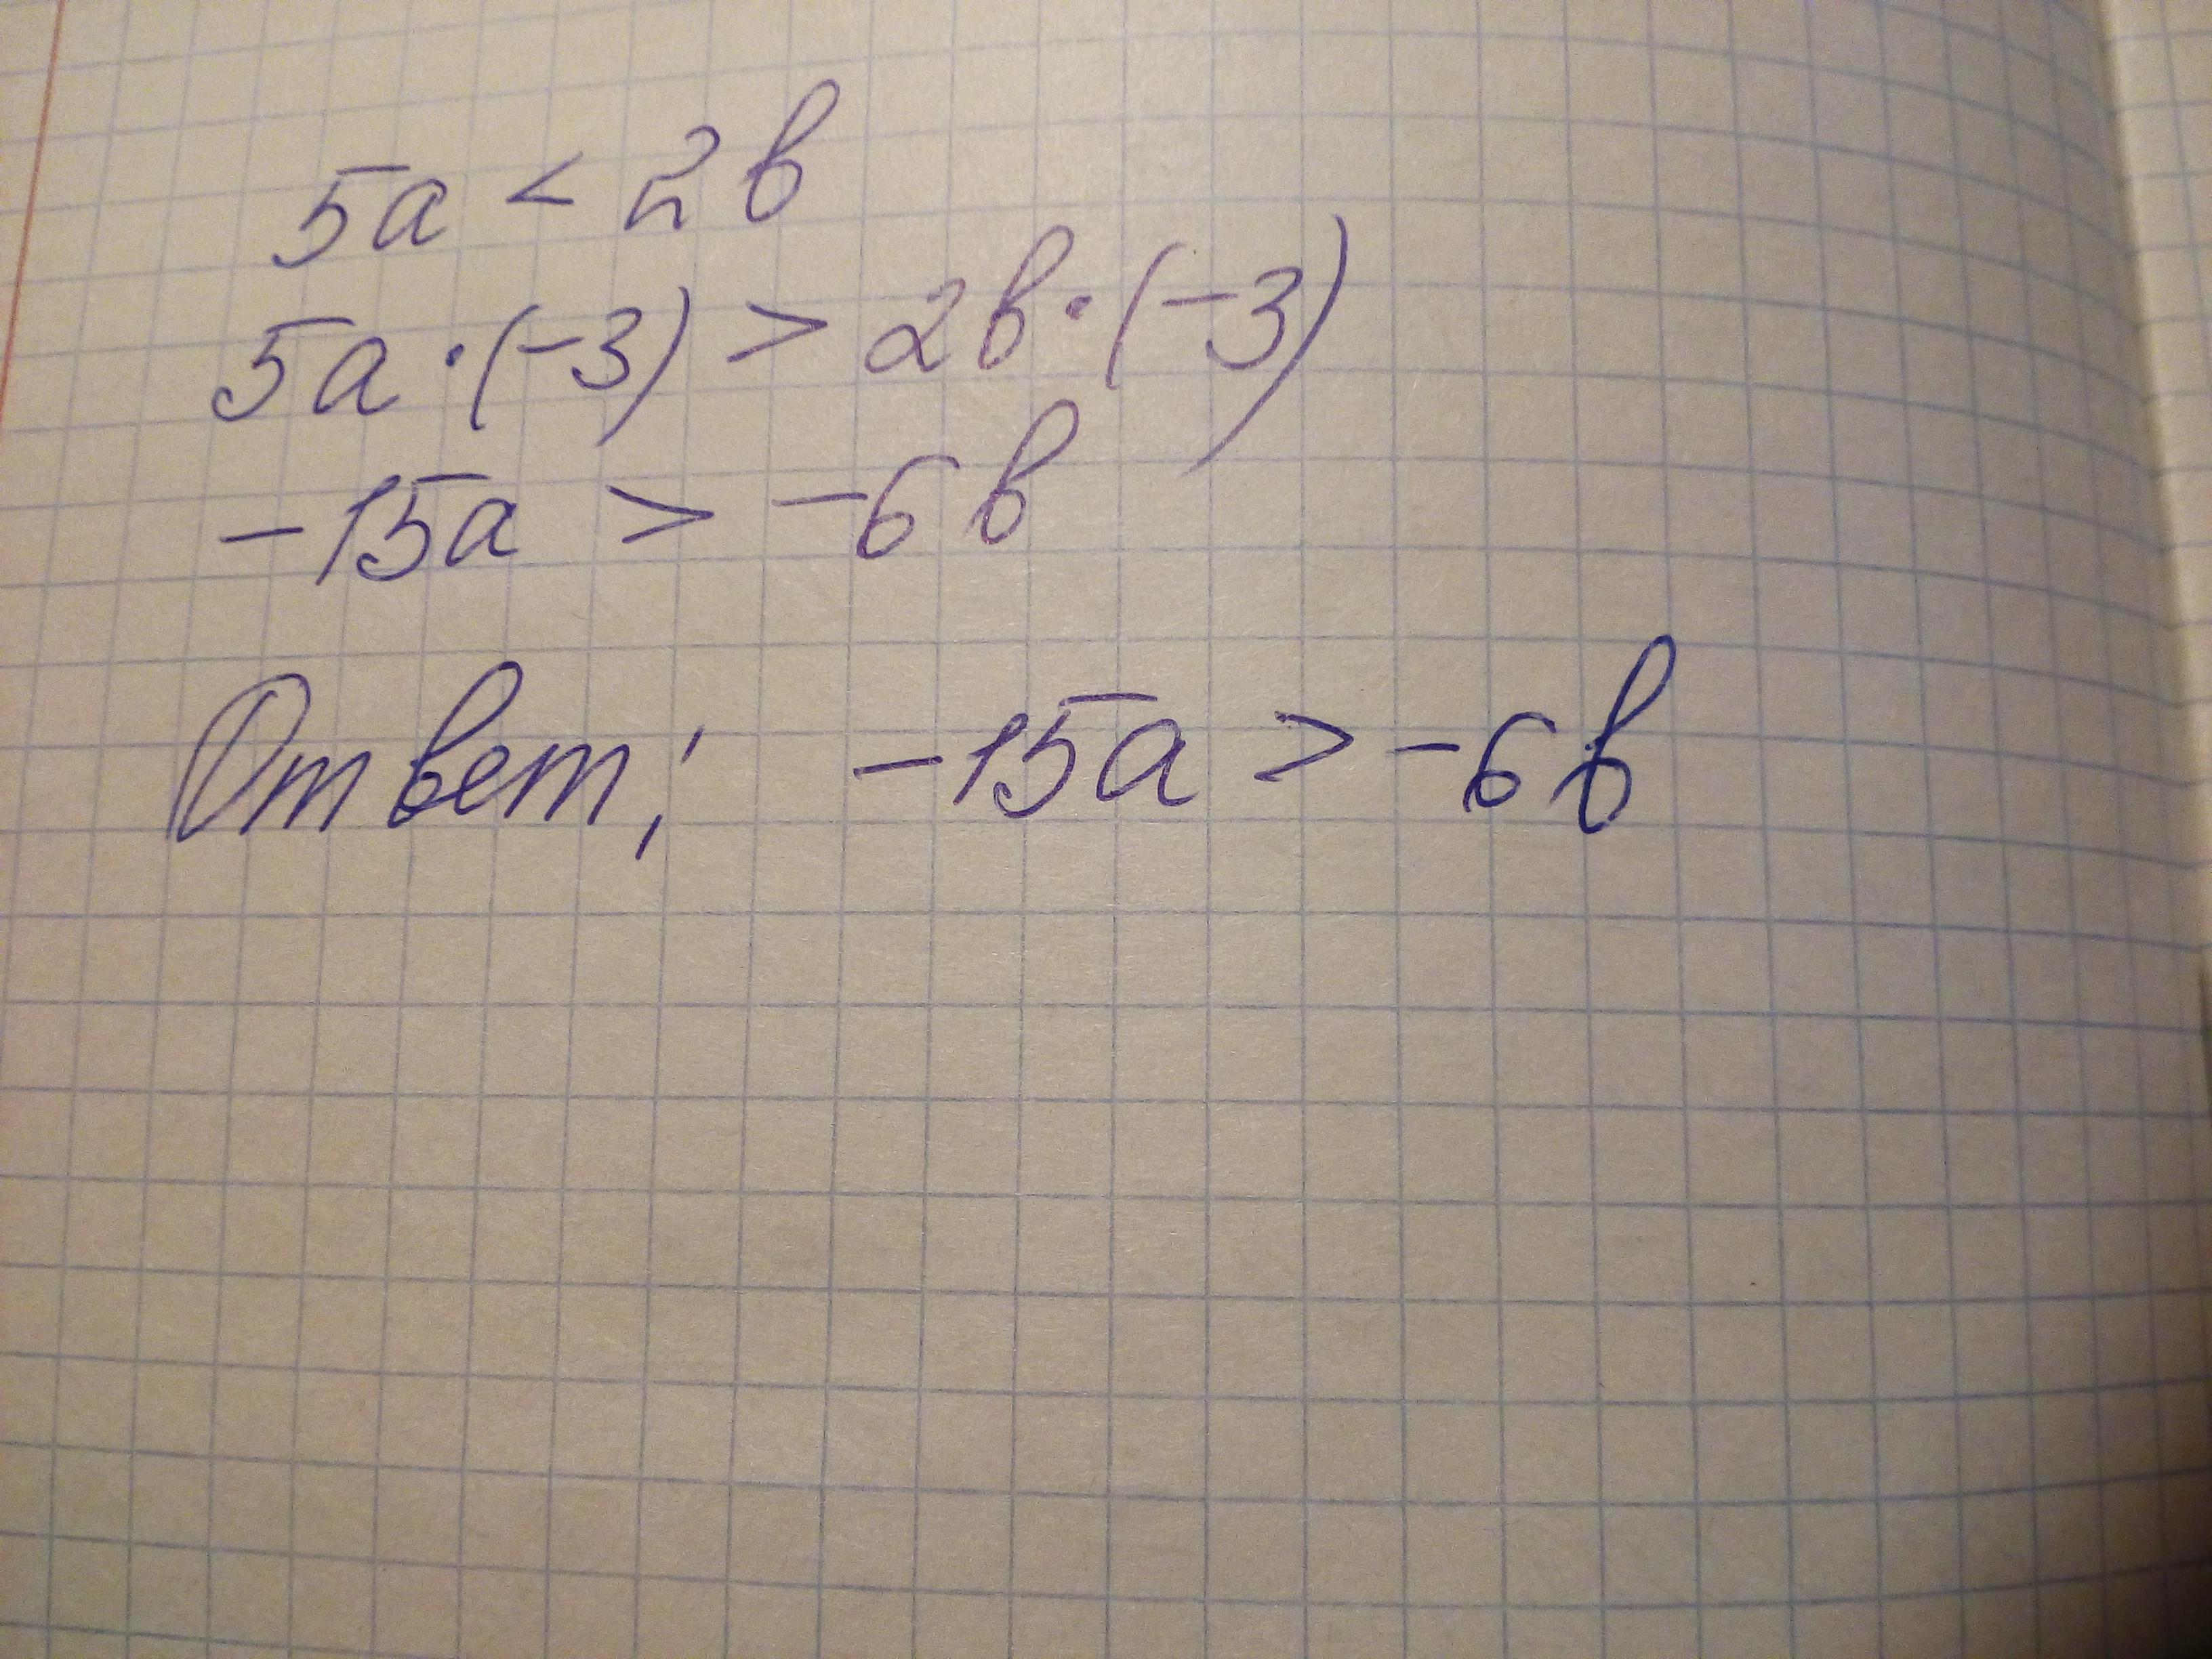 5a < 2b
5a · (-3) > 2b · (-3)
-15a > -6b
Ответ: -15a > -6b